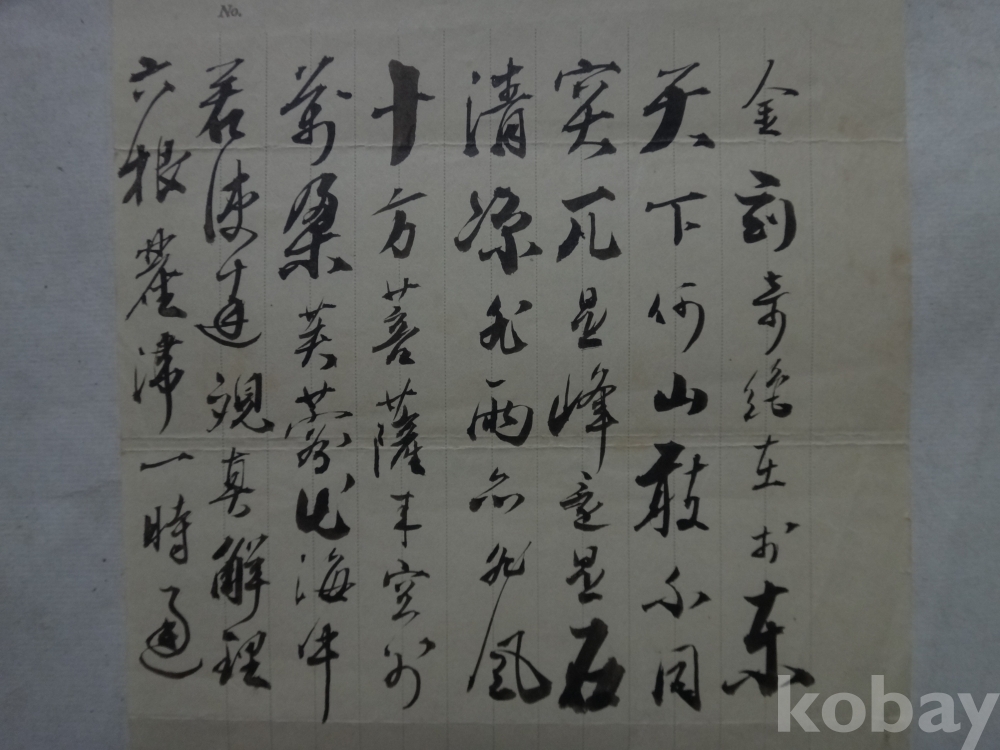 No.
金剛奇絶在扵東
天下何山敢不同
突兀是峰還是石
清凉非雨亦非風
十方菩薩来空外
萬朶芙蓉出海中
若使達觀真解理
六根塵滯一時通
kobay